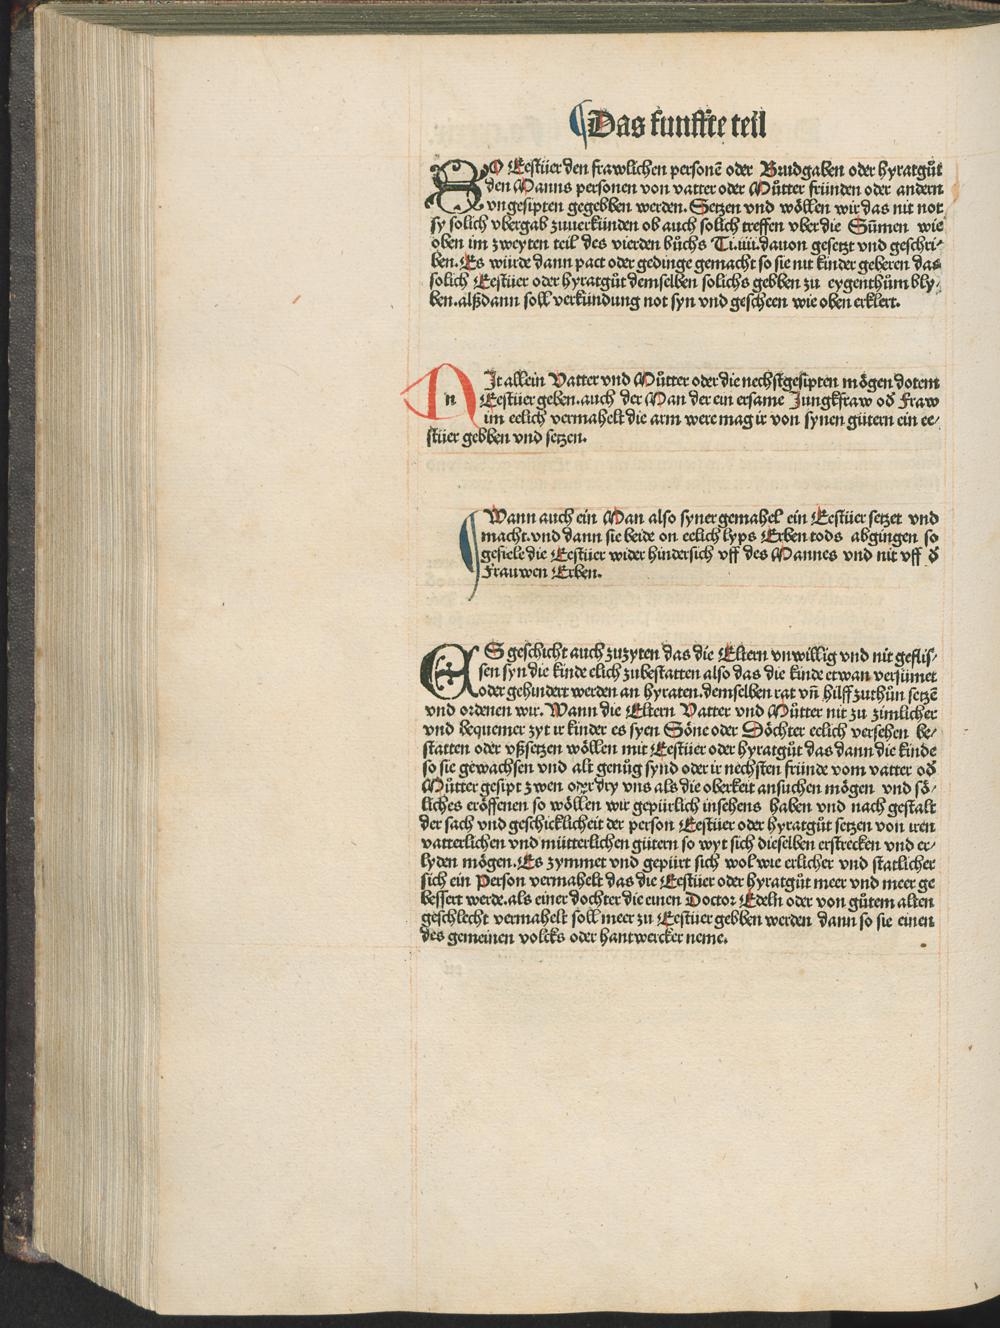 Das funffte teil
SO Eestüer den frawlichen personē oder Brudgaben oder hyratgůt
den Manns personen von vatter oder Můtter fründen oder andern
vngesipten gegebben werden. Setzen vnd wöllen wir das nit not
sy solich vbergab zuuerkünden ob auch solich treffen vber die Sůmen wie
oben im zweyten teil des vierden bůchs Ti.iiii. dauon gesetzt vnd geschri-
ben. Es würde dann pact oder gedinge gemacht so sie nit kinder geberen das
solich Eestüer oder hyratgůt demselben solichs gebben zu eygenthům bly-
ben. alßdann soll verkündung not syn vnd gescheen wie oben erklert.
NIt allein Vatter vnd Můtter oder die nechstgesipten mögen dotem
Eestüer geben. auch der Man der ein ersame Jungkfraw od̄ Fraw
im eelich vermahelt die arm were mag ir von synen gütern ein ee-
stüer gebben vnd setzen.
Wann auch ein Man also syner gemahel ein Eestüer setzet vnd
macht. vnd dann sie beide on eelich lyps Erben tods abgingen so
gefiele die Eestüer wider hindersich vff des Mannes vnd nit vff d̄
Frauwen Erben.
ES geschicht auch zuzyten das die Eltern vnwillig vnd nit geflis-
sen syn die kinde elich zubestatten also das die kinde etwan versümet
oder gehindert werden an hyraten. demselben rat vn̄ hilff zuthůn setzē
vnd ordenen wir. Wann die Eltern Vatter vnd Můtter nit zu zimlicher
vnd bequemer zyt ir kinder es syen Söne oder Döchter eelich versehen be-
statten oder vßsetzen wöllen mit Eestüer oder hyratgůt das dann die kinde
so sie gewachsen vnd alt genůg synd oder ir nechsten fründe vom vatter od̄
Můtter gesipt zwen oder dry vns als die oberkeit ansuchen mögen vnd sö-
liches eröffenen so wöllen wir gepürlich insehens haben vnd nach gestalt
der sach vnd geschicklicheit der person Eestüer oder hyratgůt setzen von iren
vatterlichen vnd mütterlichen gütern so wyt sich dieselben erstrecken vnd er-
lyden mögen. Es zymmet vnd gepürt sich wol wie erlicher vnd statlicher
sich ein Person vermahelt das die Eestüer oder hyratgůt meer vnd meer ge
bessert werde. als einer dochter die einen Doctor Edeln oder von gůtem alten
geschlecht vermahelt soll meer zu Eestüer gebben werden dann so sie einen
des gemeinen volcks oder hantwercker neme.